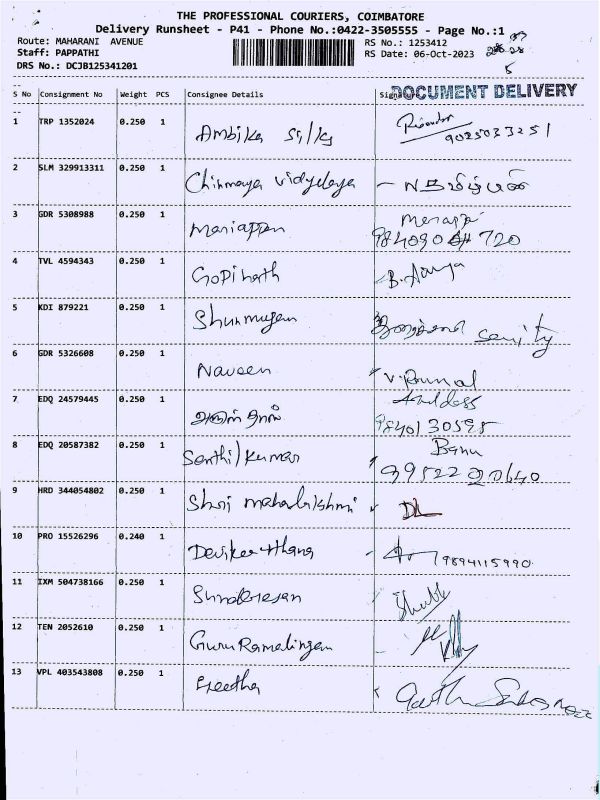 THE PROFESSIONAL COURIERS, COIMBATORE
Delivery Runsheet - P41 - Phone No.:0422-3505555 - Page No.:1
Route: MAHARANI AVENUE
RS No.: 1253412
Staff: PAPPATHI
RS Date: 06-Oct-2023
DRS No.: DCJB125341201
5
DOCUMENT DELIVERY
S No Consignment No Weight PCS Consignee Details Signature
1 TRP 1352024 0.250 1 Ambika Silks
9025033251
2 SLM 329913311 0.250 1 Chinmaya Vidyalaya
3 GDR 5308988 0.250 1 Mariappan
720
4 TVL 4594343 0.250 1 Gopinath B. Arya
5 KDI 879221 0.250 1 Shunmugam
6 GDR 5326608 0.250 1 Naveen
7 EDQ 24579445 0.250 1 அருள் தாஸ்
9840130595
8 EDQ 20587382 0.250 1 Senthil kumar Banu
9 HRD 344054802 0.250 1 Shri mahalakshmi
10 PRO 15526296 0.240 1 9894115990
11 IXM 504738166 0.250 1 Sundaresan
12 TEN 2052610 0.250 1 Guru Ramalingam
13 VPL 403543808 0.250 1 Geetha